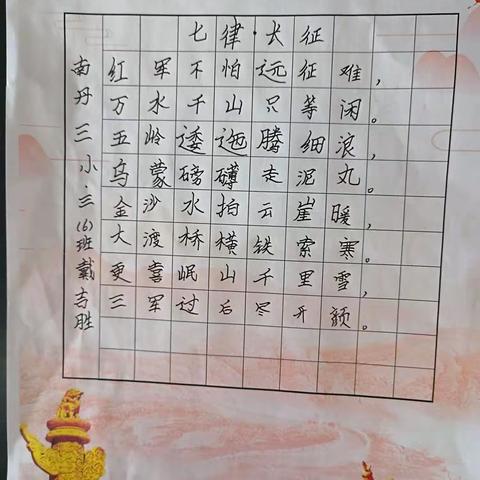 七律·长征
红军不怕远征难，
万水千山只等闲。
五岭逶迤腾细浪，
乌蒙磅礴走泥丸。
金沙水拍云崖暖，
大渡桥横铁索寒。
更喜岷山千里雪，
三军过后尽开颜。
南丹三小·三(6)班戴吉胜